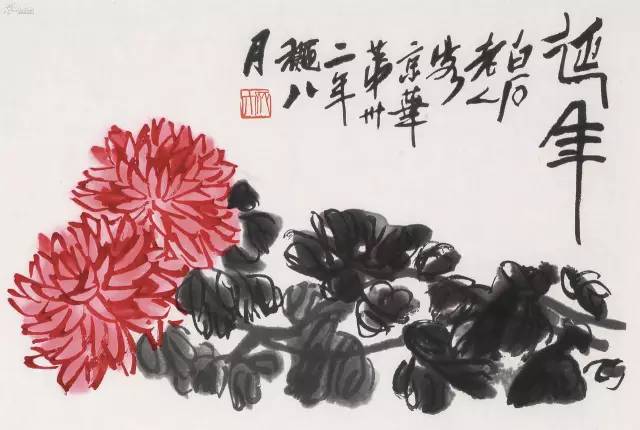 延年
白石
老人
客
京華
第卅
二年
龝八
月